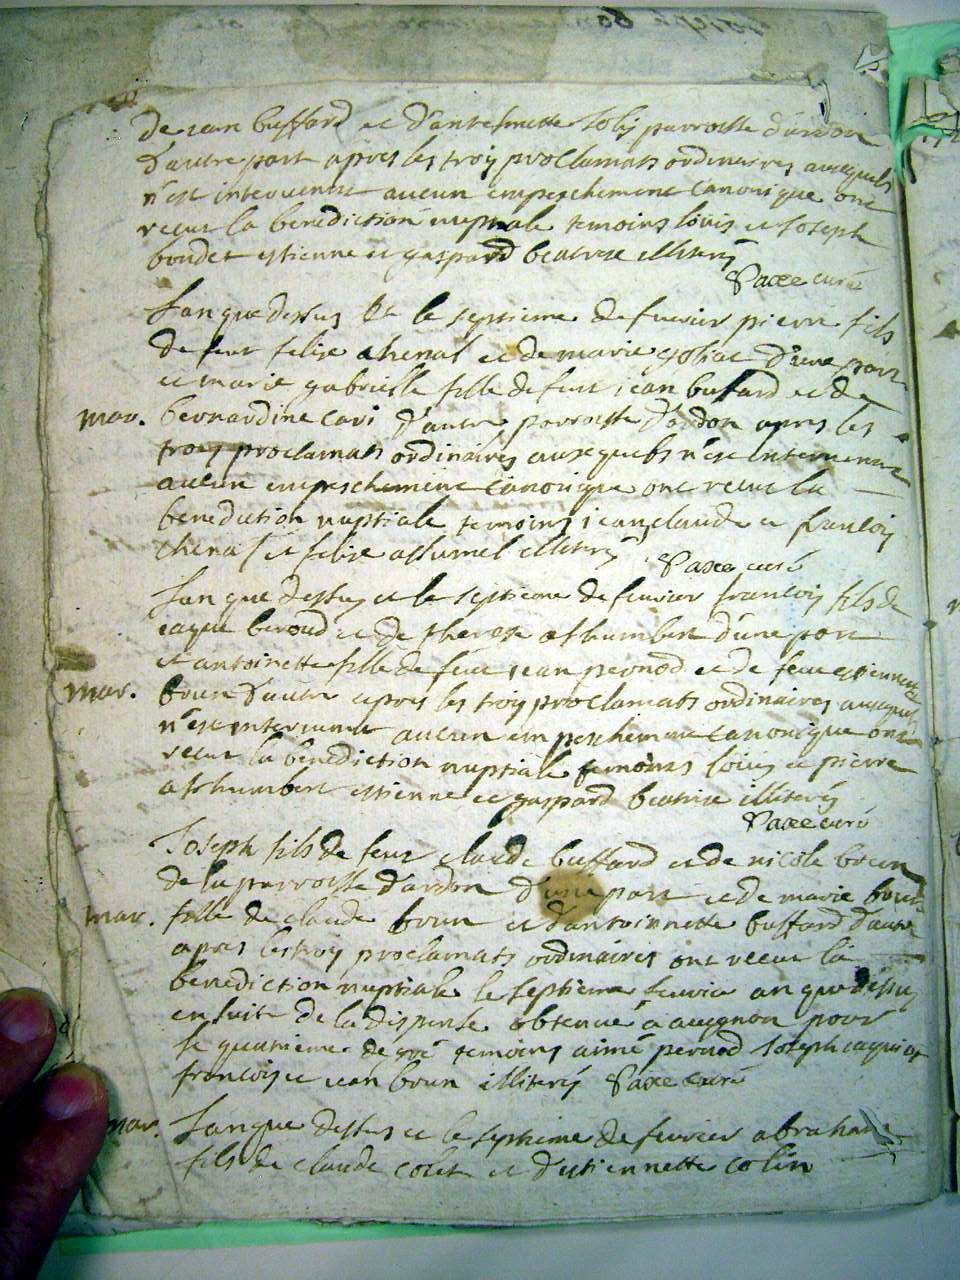 de jean buffard et d'anthesnette Joly parroisse d'ardon
d'autre part apres les troy proclamats ordinaires auxquels
n'est intervenut aucun empeschement canonique ont
receut la benediction nuptiale temoins louis et Joseph
boudet estienne et gaspard beatrix illiterés
Paxe curé
Lan que dessus et le septieme de fevrier pierre fils
de feut felix chenal et de marie goliac d'une part
et marie gabrielle fille de feut jean bufard et de
mar. bernardine cari d'autre parroisse d'ardon apres les
troy proclamats ordinaires auxquels n'est intervenut
aucun empeschement canonique ont receut la
benediction nuptiale temoins jean claude et francois
chenal et felix allumel illiterés Paxe curé
Lan que dessus et le septieme de fevrier francois fils de
jaque beroud et de therese as humbert d'une part
et antoinette fille de feut jean pernod et de feue estiennette
mar. boun d'autre apres les troy proclamats ordinaires auxquels
n'est intervenut aucun empeschement canonique ont
receut la benediction nuptiale temoins louis et pierre
as humbert estienne et gaspard beatrix illiterés
Paxe curé
Joseph fils de feut claude buffard et de nicole boun
de la parroisse d'ardon d'une part et de marie boun
mar. fille de claude boun et d'antoinnette buffard d'autre
apres les troy proclamats ordinaires ont receut la
benediction nuptiale le septieme fevrier an que dessus
en suite de la dispense obtenue a avignon pour
le quatrieme degré temoins aimé pernod Joseph jaquiot
francois et jean boun illiterés Paxe curé
mar. Lan que dessus et le septieme de fevrier abraham
fils de claude colet et d'estiennette colin